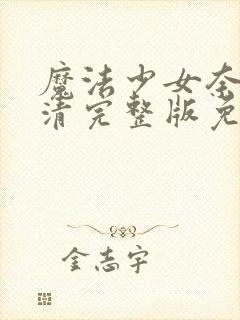 魔法少女奈
清完整版免
金志宇